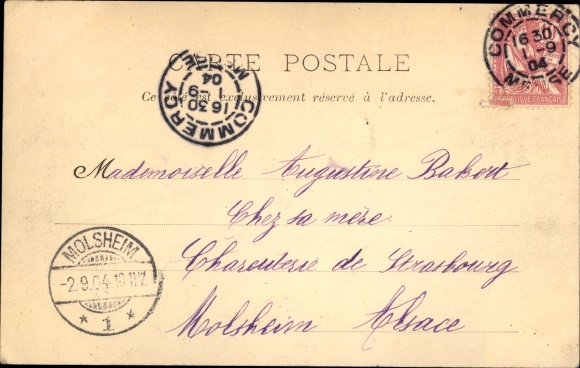 CARTE POSTALE
Ce côté est exclusivement réservé à l'adresse.
COMMERCY
16 30
1 - 9
04
MEUSE
COMMERCY
6 30
1 - 9
04
MEUSE
RÉPUBLIQUE FRANÇAISE
Mademoiselle Augustine Bakert
Chez sa mère
Charcuterie de Strasbourg
Molsheim Alsace
MOLSHEIM
-2.9.04.10.11V.
* 1 *